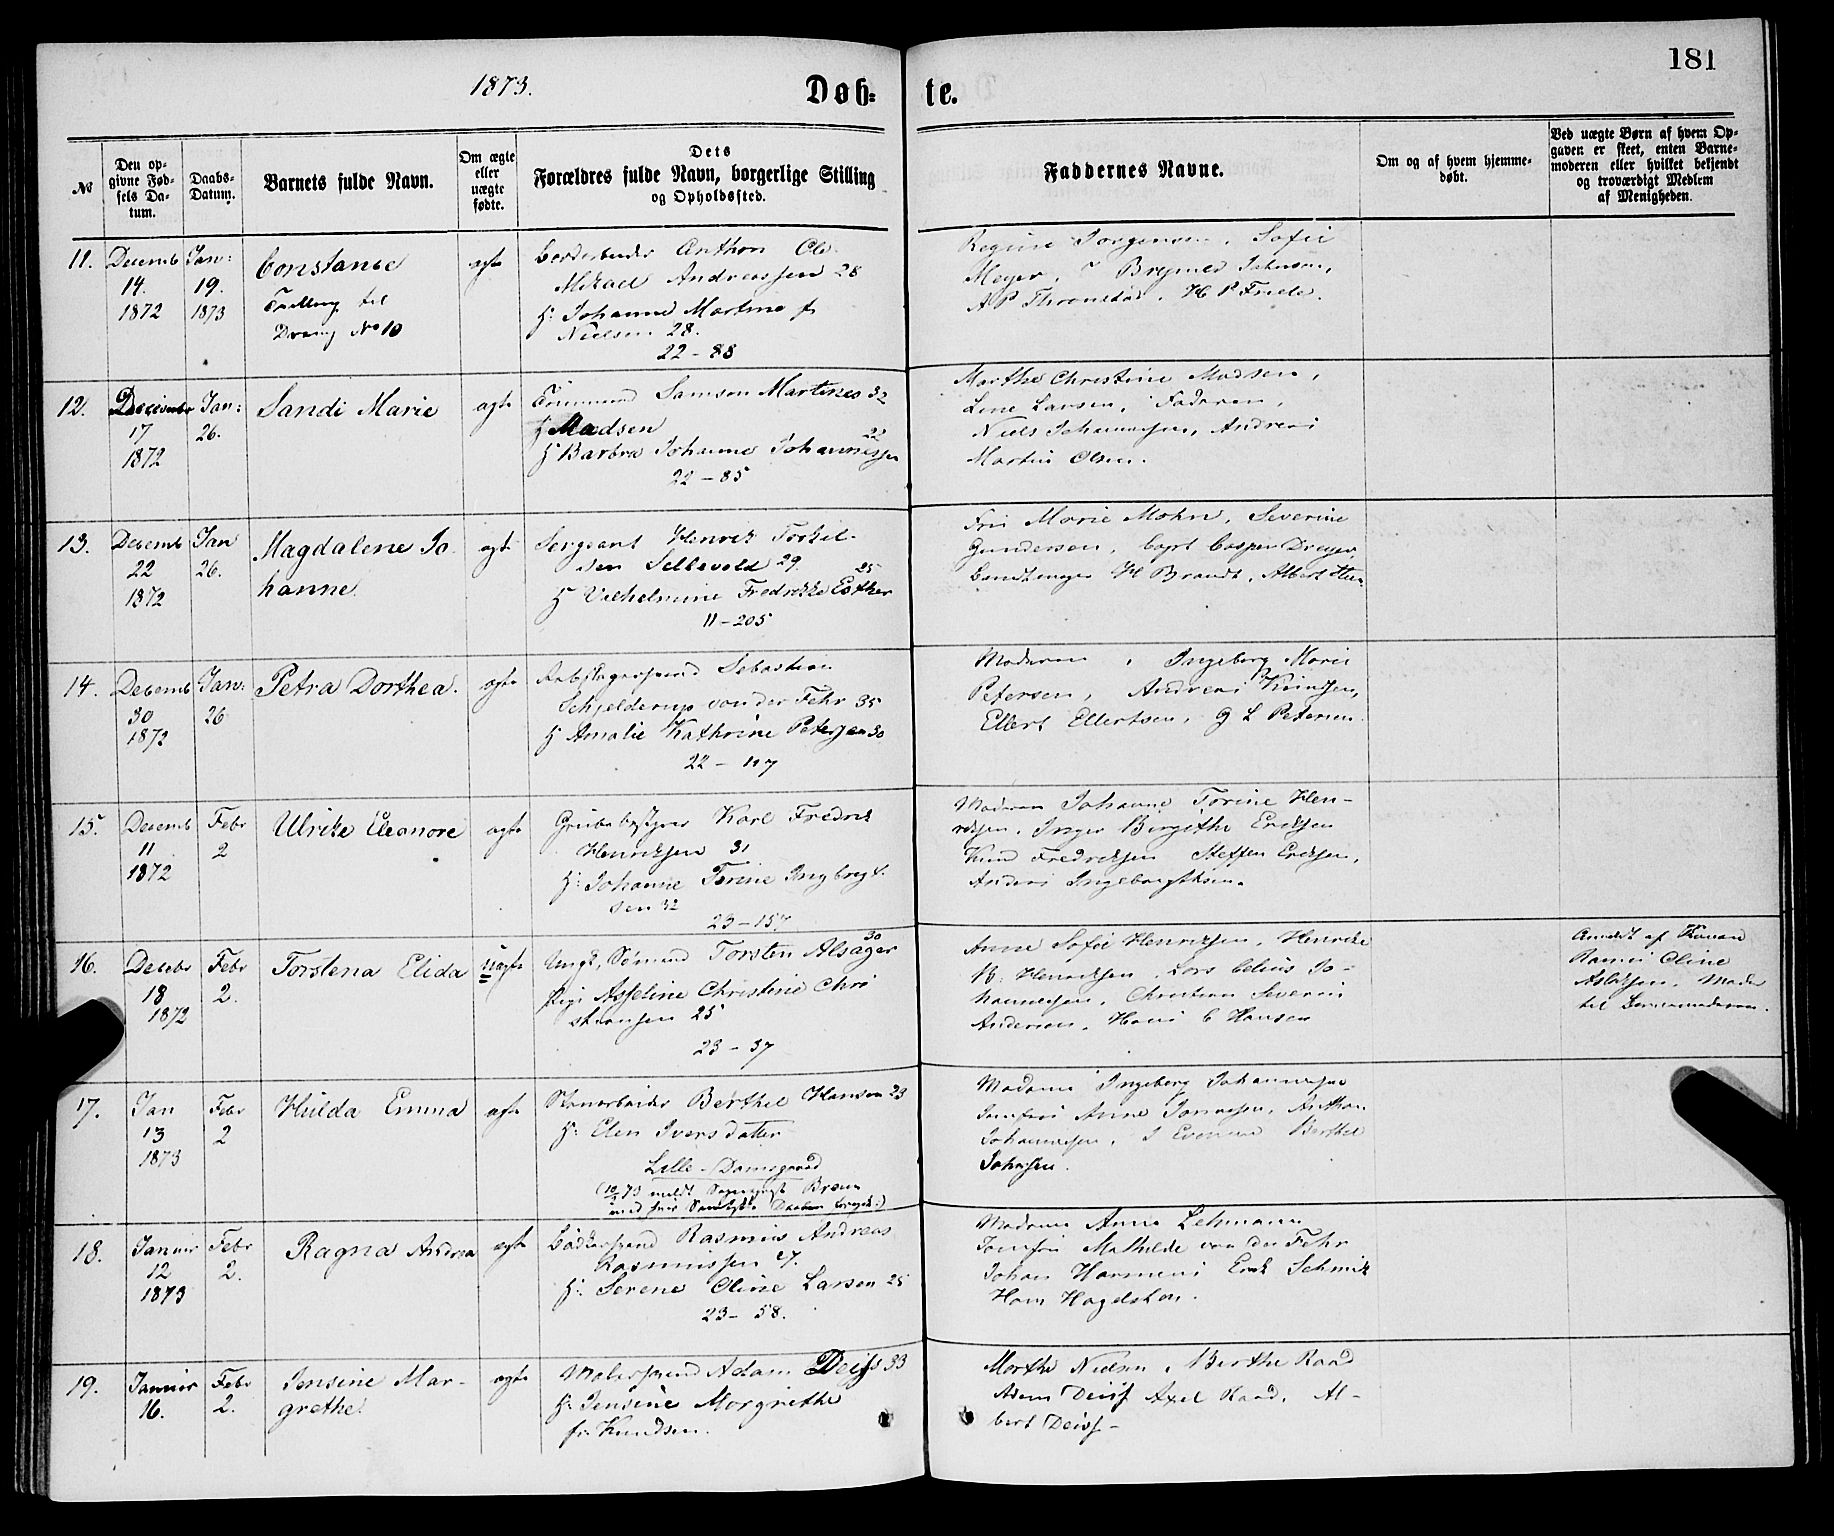 181
1873.
Døb- te.
№
Den op-
givne Fød-
sels Da-
tum.
Daabs-
Datum.
Barnets fulde Navn.
Om ægte
eller
uægte
fødte.
Dets
Forældres fulde Navn, borgerlige Stilling
og Opholdssted.
Faddernes Navne.
Om og af hvem hjemme-
døbt.
Ved uægte Børn af hvem Op-
gaven er skeet, enten Barne-
moderen eller hvilket bekjendt
og troværdigt Medlem
af Menigheden.
11.
Decemb
14.
1872
Jan:
19.
1873
Constance
Tvilling til
Dreng No 10
ægte
Anthon Ole
Mikael Andreassen 28
H: Johanne Martine f
Nielsen 28.
22-88
Regine Jorgensen, Sofie
Meyer, Brynild Johnson,
A P Thronstad, H P Friele.
12.
Decembr
17
1872
Jan:
26.
Sandi Marie
ægte
Tømmermd Samson Martines 32
Madsen
H Barbra Johanne Johannessen 22
22-85
Marthe Christine Madsen,
Line Larsen, Faderen,
Niels Johannessen, Andreas
Martin Olsen.
13.
Decemb
22
1872
Jan
26.
Magdalene Jo
hanne
ægte
Sergeant Henrik Torkil-
sen Sellevold 29.
H Vilhelmine Fredrikke Esther 25
11-205
Frū Marie Mohn, Severine
Gundersen, Capt Casper Dreyer,
H Brandt, Albert
14.
Decemb
30
1872
Jan:
26
Petra Dorthea.
ægte
Rebslagersvend Sebastian
Schjelderup von der Fehr 35
H Amalie Kathrine Petersen 30
22-117
Moderen, Ingeborg Marie
Petersen, Andreas Knudsen,
Ellert Ellertsen, G L Petersen.
15.
Decemb
11
1872
Febr
2
Ulrike Eleonore
ægte
Grubebestyrer Karl Fredrik
Henriksen 31
H: Johanne Torine Ingbrigt-
sen 32
23-157
Moderen Johanne Torine Hen-
riksen, Inger Birgithe Eriksen
Knud Fredriksen Steffen Eriksen,
Anders Ingebrigtsen.
16.
Decebr
18
1872
Febr
2.
Torstena Elida
uægte
Ungk, Sømand Torsten Alsager 30
Pige Asseline Christine Chri
stiansen 25
23-37
Anne Sofie Henriksen, Henrikke
B. Henriksen, Lars Celius Jo-
hannessen, Christian Severin
Andersen, Hans C Hansen
Anmeldt af Konen
Rasmi Oline
Aslaksen, Moder
til Barnemoderen.
17.
Jan
13
1873
Febr
2
Hulda Emma
ægte
Stenarbeider Berthel Hansen 23
H: Elen Iversdatter
Lille-Damsgaard
Madame Ingeborg Johannessen
Jomfru Anne Jonassen, Anthon
Johannessen, I Evensen Berthel
Johnsen.
18.
Januar
12
1873
Febr
2.
Ragna Andrea
ægte
Bødkersvend Rasmus Andreas
Rasmussen 27.
H: Serene Oline Larsen 25
23-58.
Madame Anna Lehmann
Jomfru Mathilde von der Fehr
Johan Harmens Erik Schmidt
Hans Hagelsten.
19.
Januar
16.
Febr
2.
Jensine Mar-
grethe.
ægte
Malersvend Adam Deiss 33
H: Jensine Margrethe
f. Knudsen.
Marthe Nielsen, Berthe Raad
Adam Deiss Axel Raad, Al-
bert Deiss-